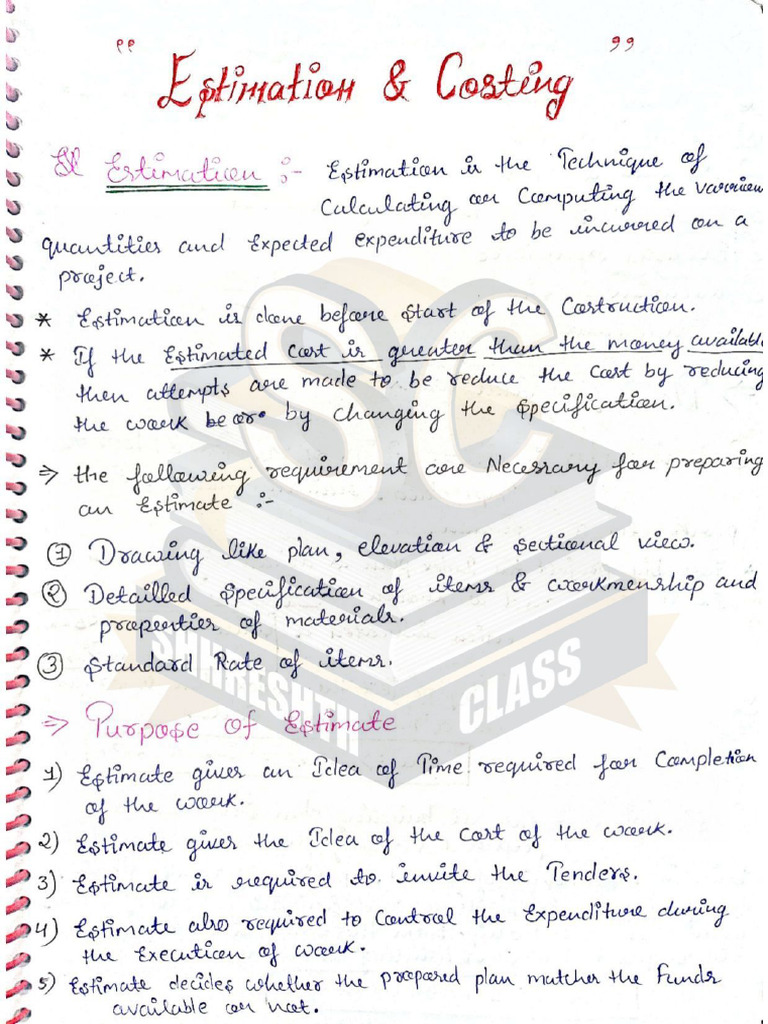 " Estimation & Costing "
Estimation :- Estimation is the Technique of
Calculating or Computing the various
quantities and Expected Expenditure to be incurred on a
project.
* Estimation is done before start of the Costruction.
* If the Estimated Cost is greater than the money available
then attempts are made to be reduce the Cost by reducing
the work be or by changing the specification.
⇒ the following requirement are Necessary for preparing
an Estimate :-
① Drawing like plan, elevation & sectional view.
② Detailled specification of items & workmenship and
properties of materials.
③ Standard Rate of items.
SHHRESHTH CLASS
⇒ Purpose of Estimate
1) Estimate gives an Idea of Time required for Completion
of the work.
2) Estimate gives the Idea of the Cost of the work.
3) Estimate is required to invite the Tenders.
4) Estimate also required to Control the Expenditure during
the Execution of work.
5) Estimate decides whether the prepared plan matches the Funds
available or not.